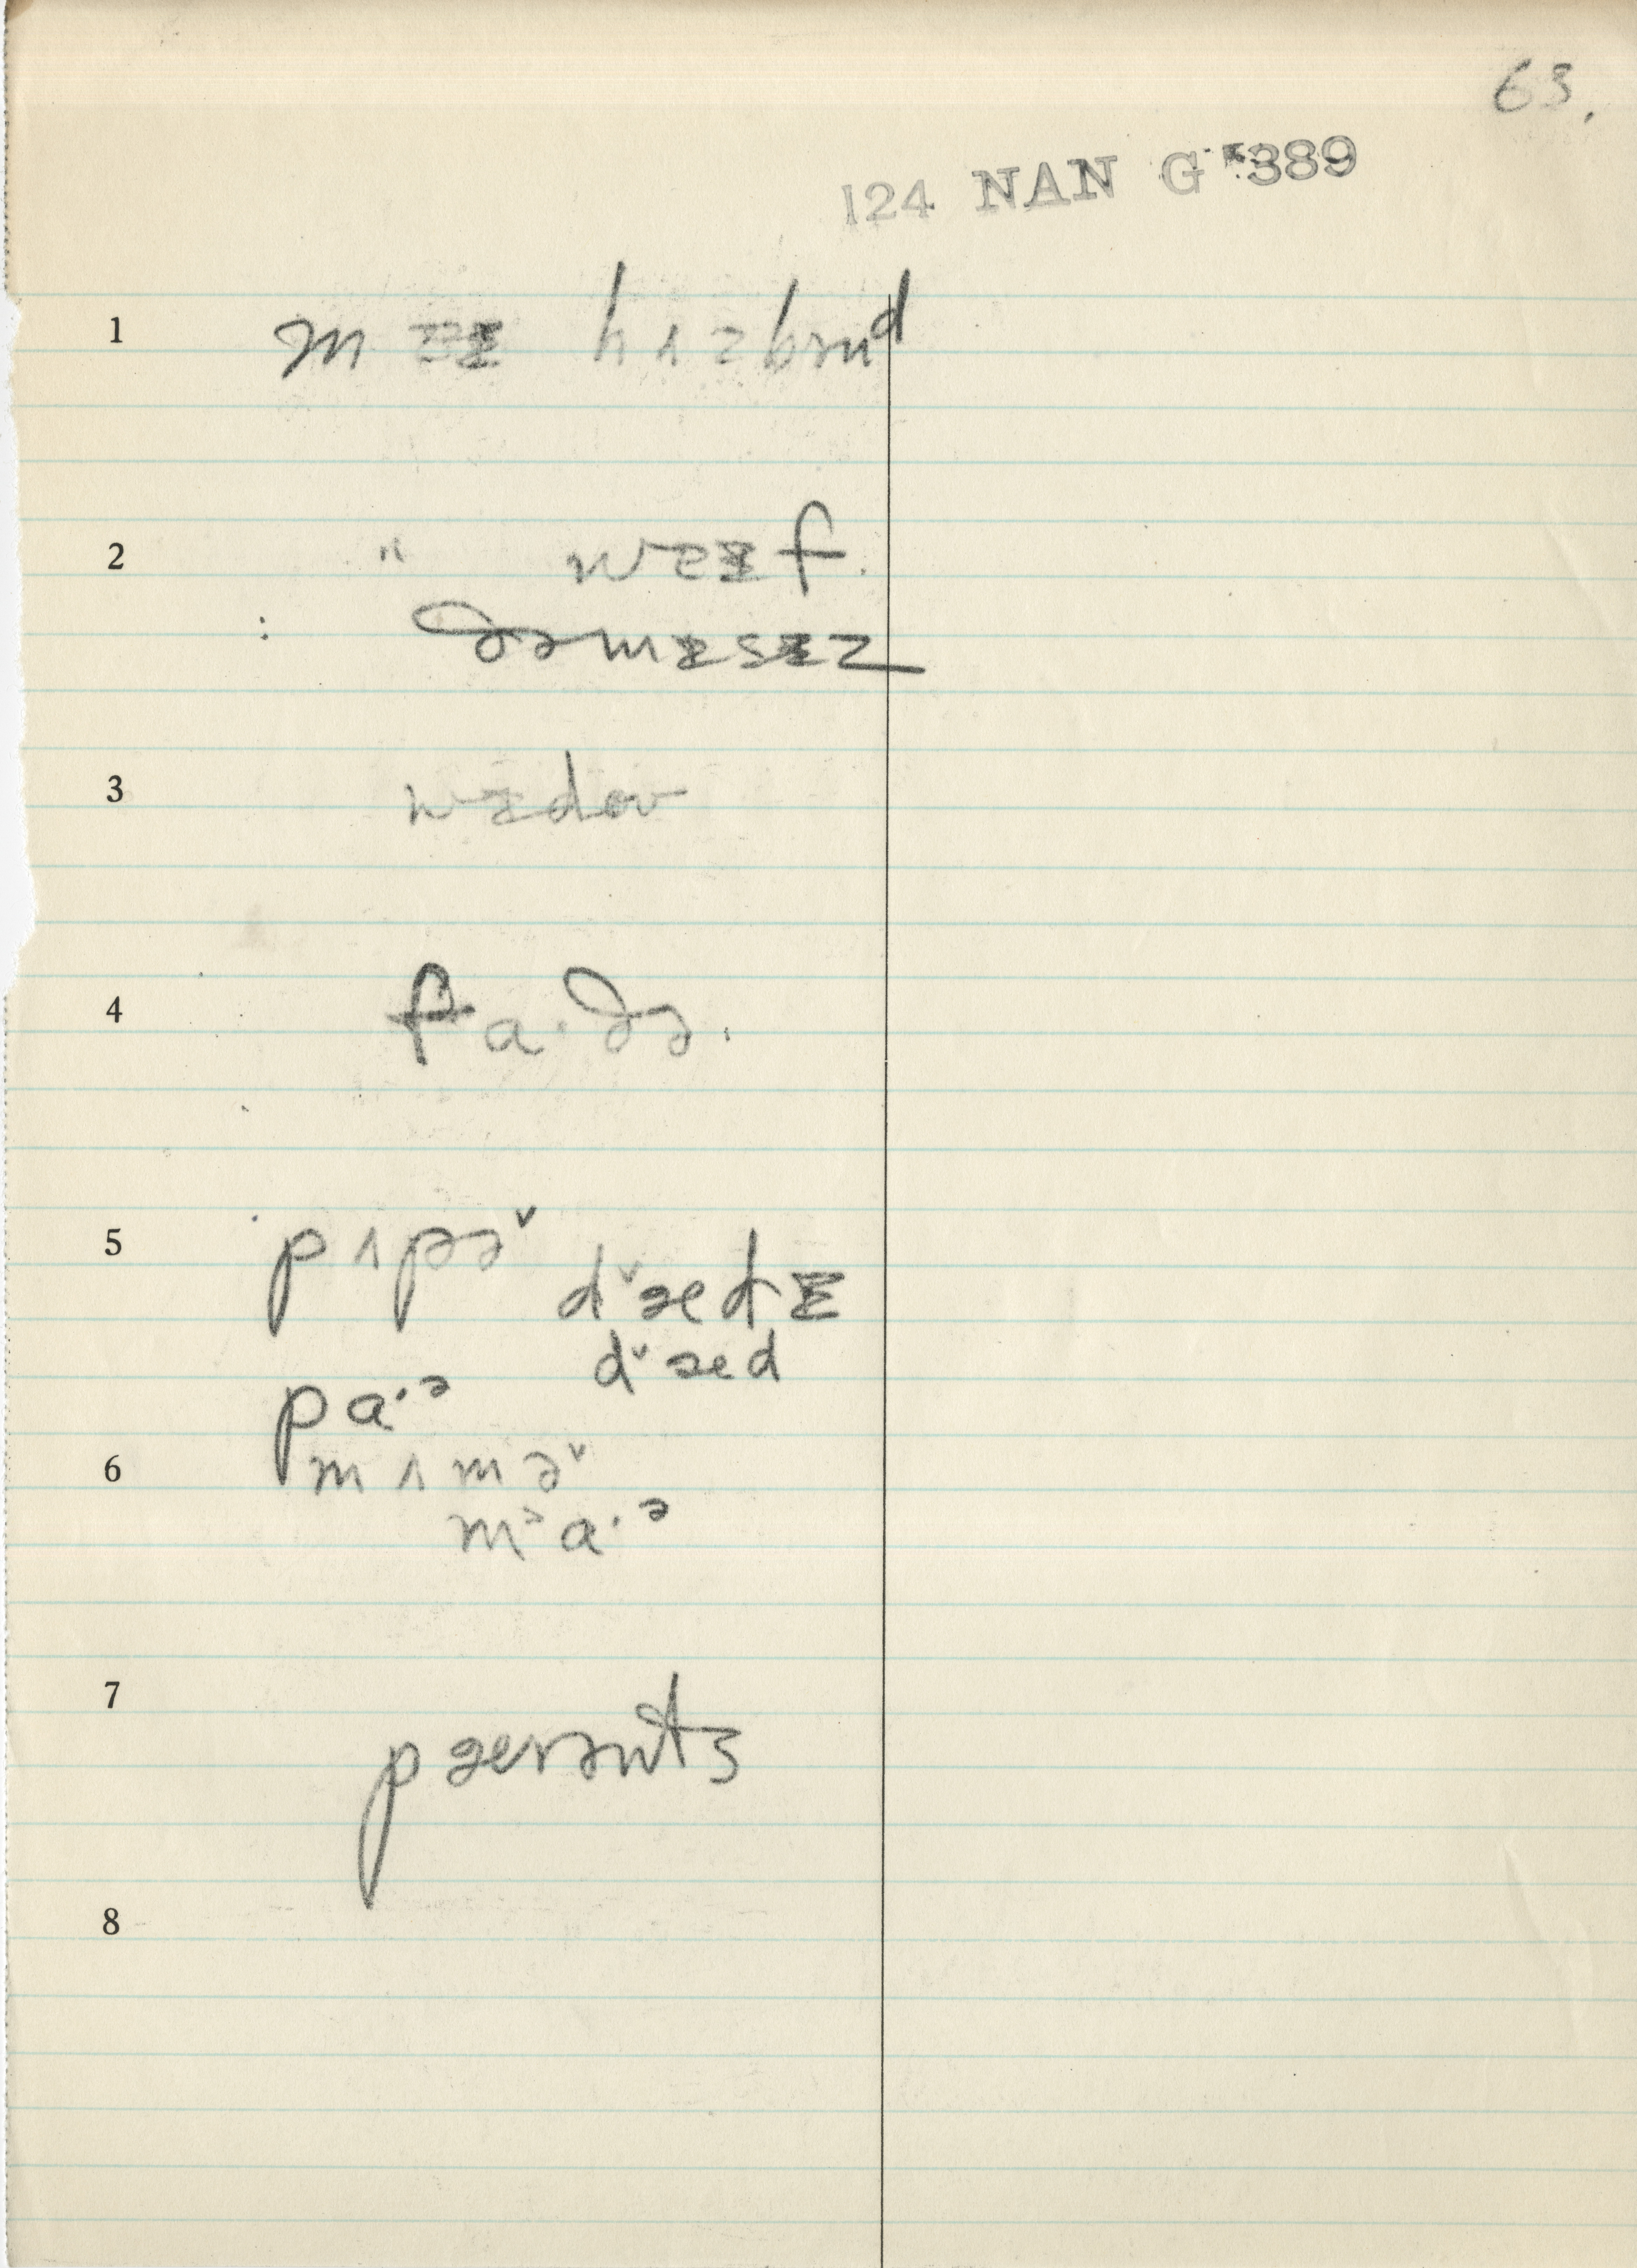 63.
124 NAN G 389
1 m ɜɪ hʌzbənᵈ
2 " wɜɪf.
: ðəmɪsɪz
3 wɪdəv
4 fa·ðə.
5 pʌpəˇ
dˇædɪ
dˇæd
pa·ᵊ
6 mʌməˇ
mᵊa·ᵊ
7 pærəntṣ
8